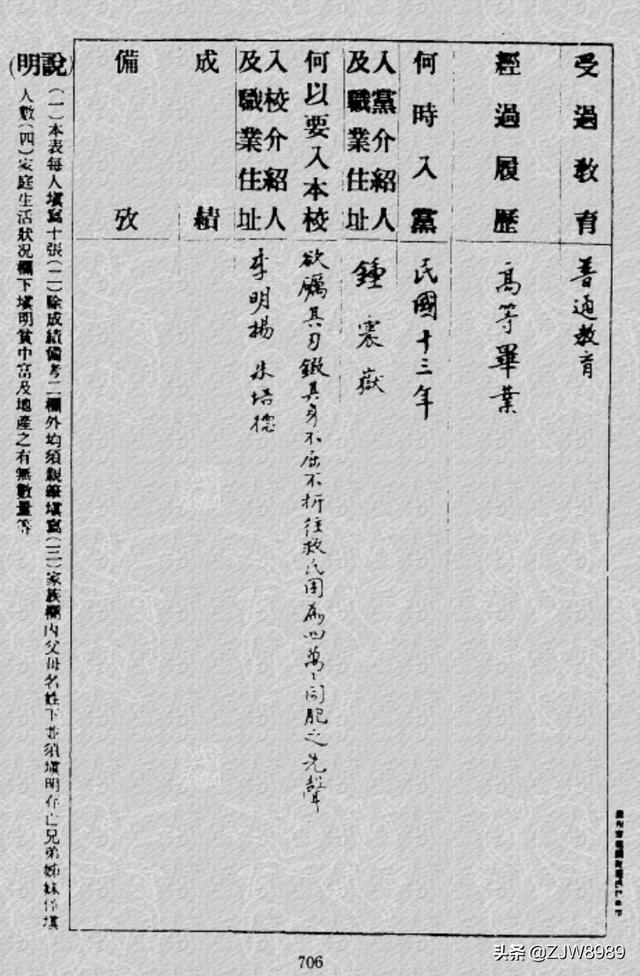 受過教育
普通教育
經過履歷
高等畢業
何時入黨
民國十三年
入黨介紹人
及職業住址
鍾震嶽
何以要入本校
欲礪其刃鍛其身不屈不折往救民國為四萬萬同胞之先聲
入校介紹人
及職業住址
李明揚 朱培德
成績
備攷
(說明)
(一)本表每人填寫十張(二)除成績備考二欄外均須親筆填寫(三)家族欄內父母名姓下並須填明存亡兄弟姊妹俱填
人數(四)家庭生活狀况欄下填明貧中富及地產之有無數量等
706
头条 @ZJW8989